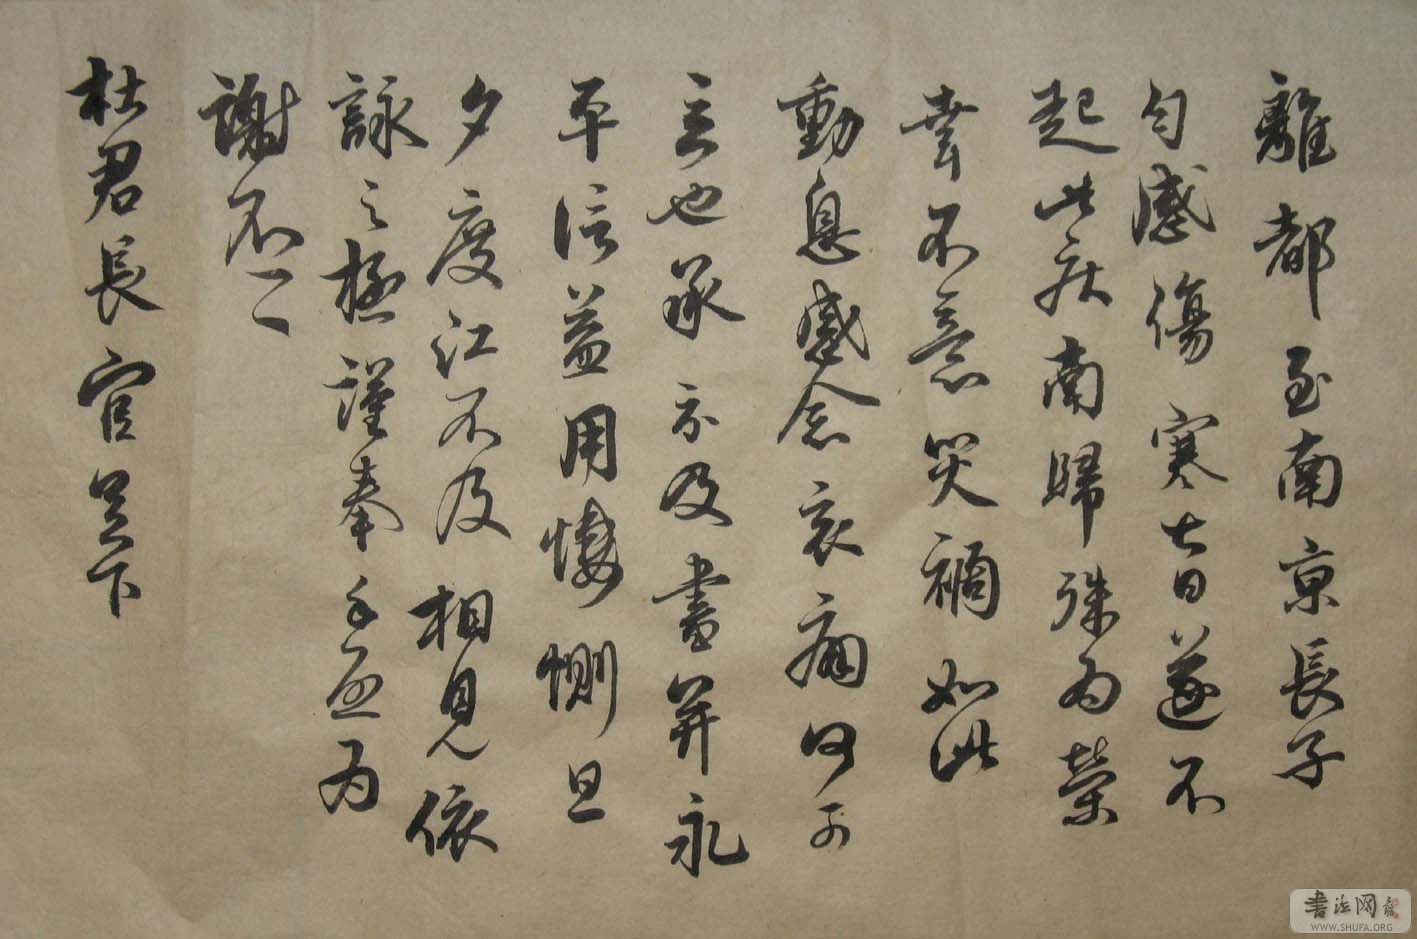 離都至南京長子
勻感傷寒七日遂不
起此疾南歸殊為榮
幸不意災禍如此
動息感念哀痛何可
言也承示及書并永
平信益用悽惻旦
夕度江不及相見依
詠之極謹奉手啟為
謝不一
杜君長官足下
書法网
WWW.SHUFA.ORG